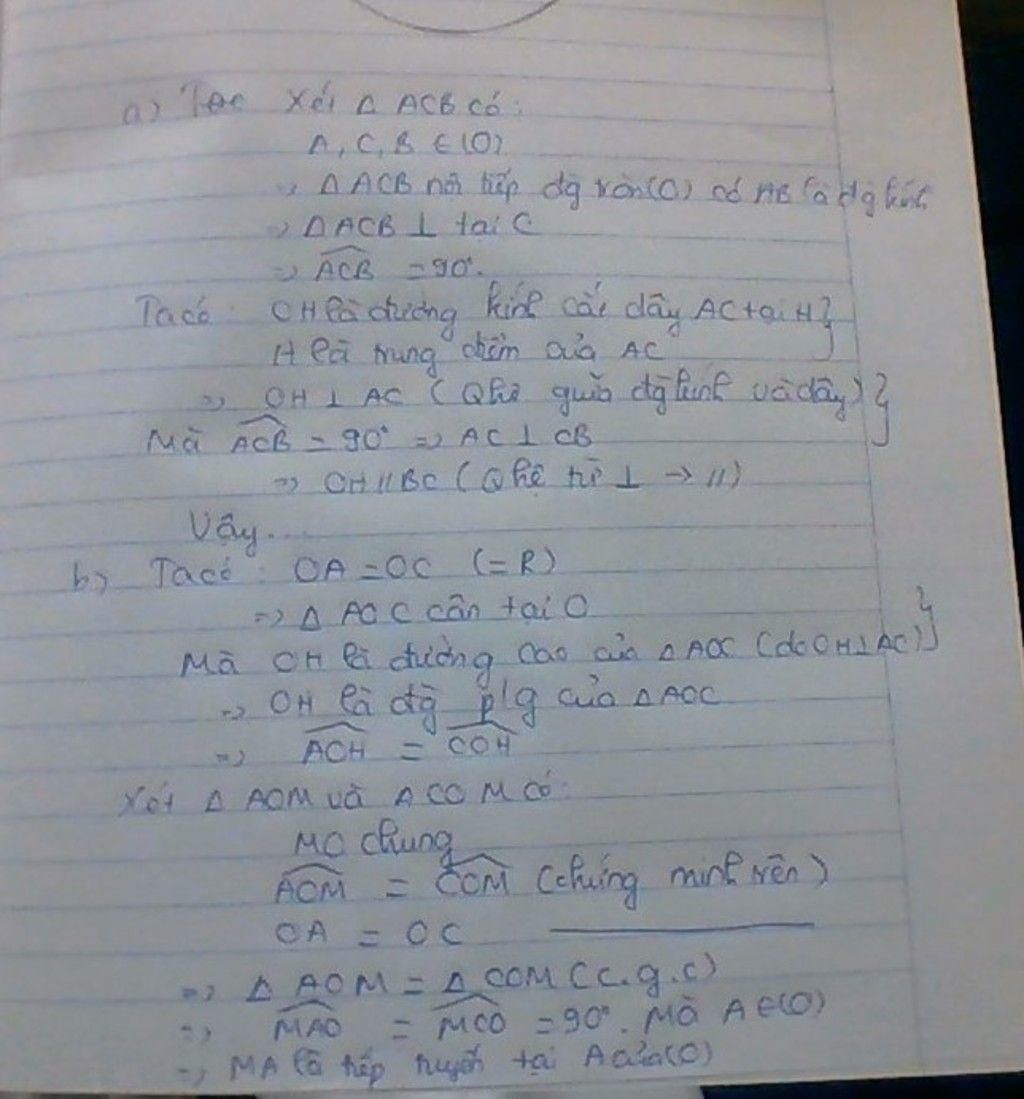 a) Xét Δ ACB có:
A, C, B ∈ (O)
=> Δ ACB nội tiếp đg tròn (O) có AB là đg kính
=> Δ ACB ⊥ tại C
=> ACB = 90°.
Ta có: OH là đường kính cắt dây AC tại H }
H là trung điểm của AC
=> OH ⊥ AC (Qhệ giữa đg kính và dây) }
Mà ACB = 90° => AC ⊥ CB
=> OH // BC (Qhệ từ ⊥ -> //)
Vậy...
b) Ta có: OA = OC (= R)
=> Δ AOC cân tại O
Mà OH là đường cao của Δ AOC (do OH ⊥ AC) }
=> OH là đg p/g của Δ AOC
=> AOH = COH
Xét Δ AOM và Δ COM có:
MO chung
AOM = COM (chứng minh trên)
OA = OC ————
=> Δ AOM = Δ COM (c.g.c)
=> MAO = MCO = 90°. Mà A ∈ (O)
=> MA là tiếp tuyến tại A của (O)